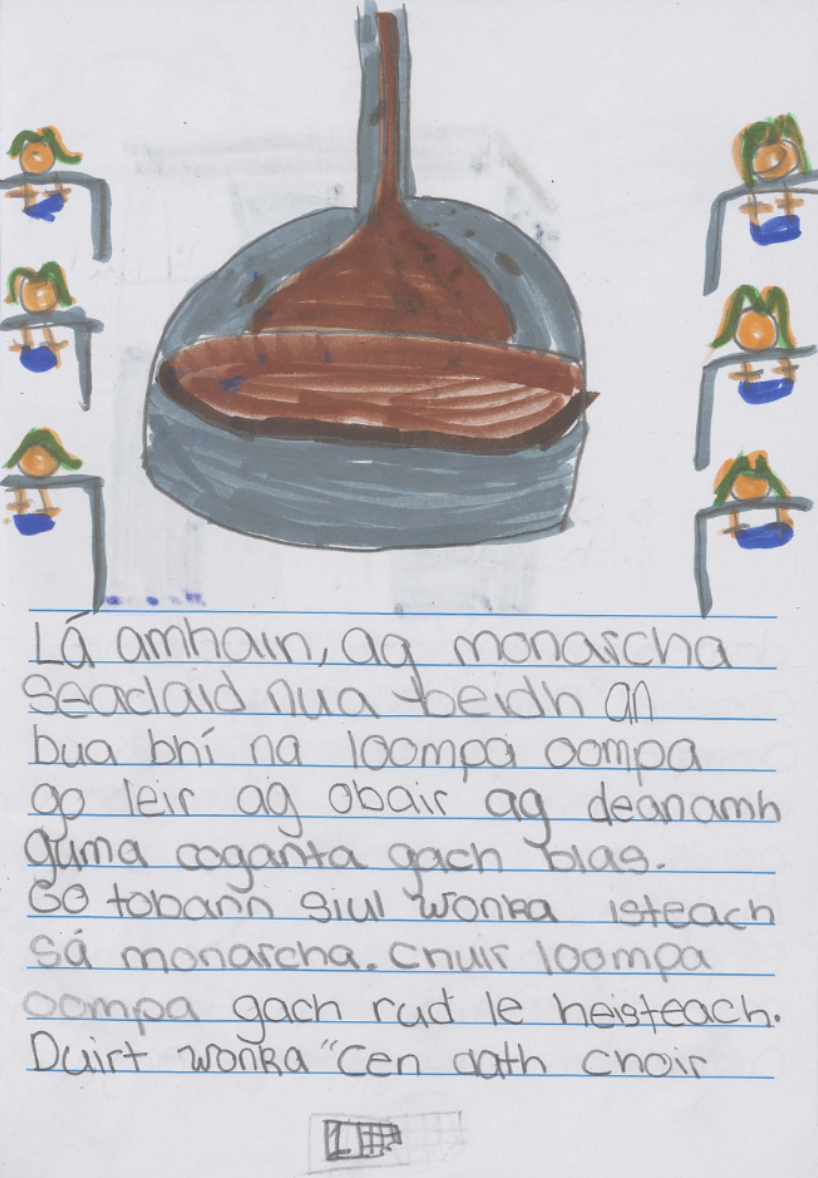 Lá amhain, ag monarcha
Seaclaid nua beidh an
bua bhí na loompa oompa
go leir ag obair ag deanamh
guma coganta gach blas.
Go tobann siul wonka isteach
sá monarcha. Chuir loompa
oompa gach rud le heisteach.
Duirt wonka "Cen dath choir
1